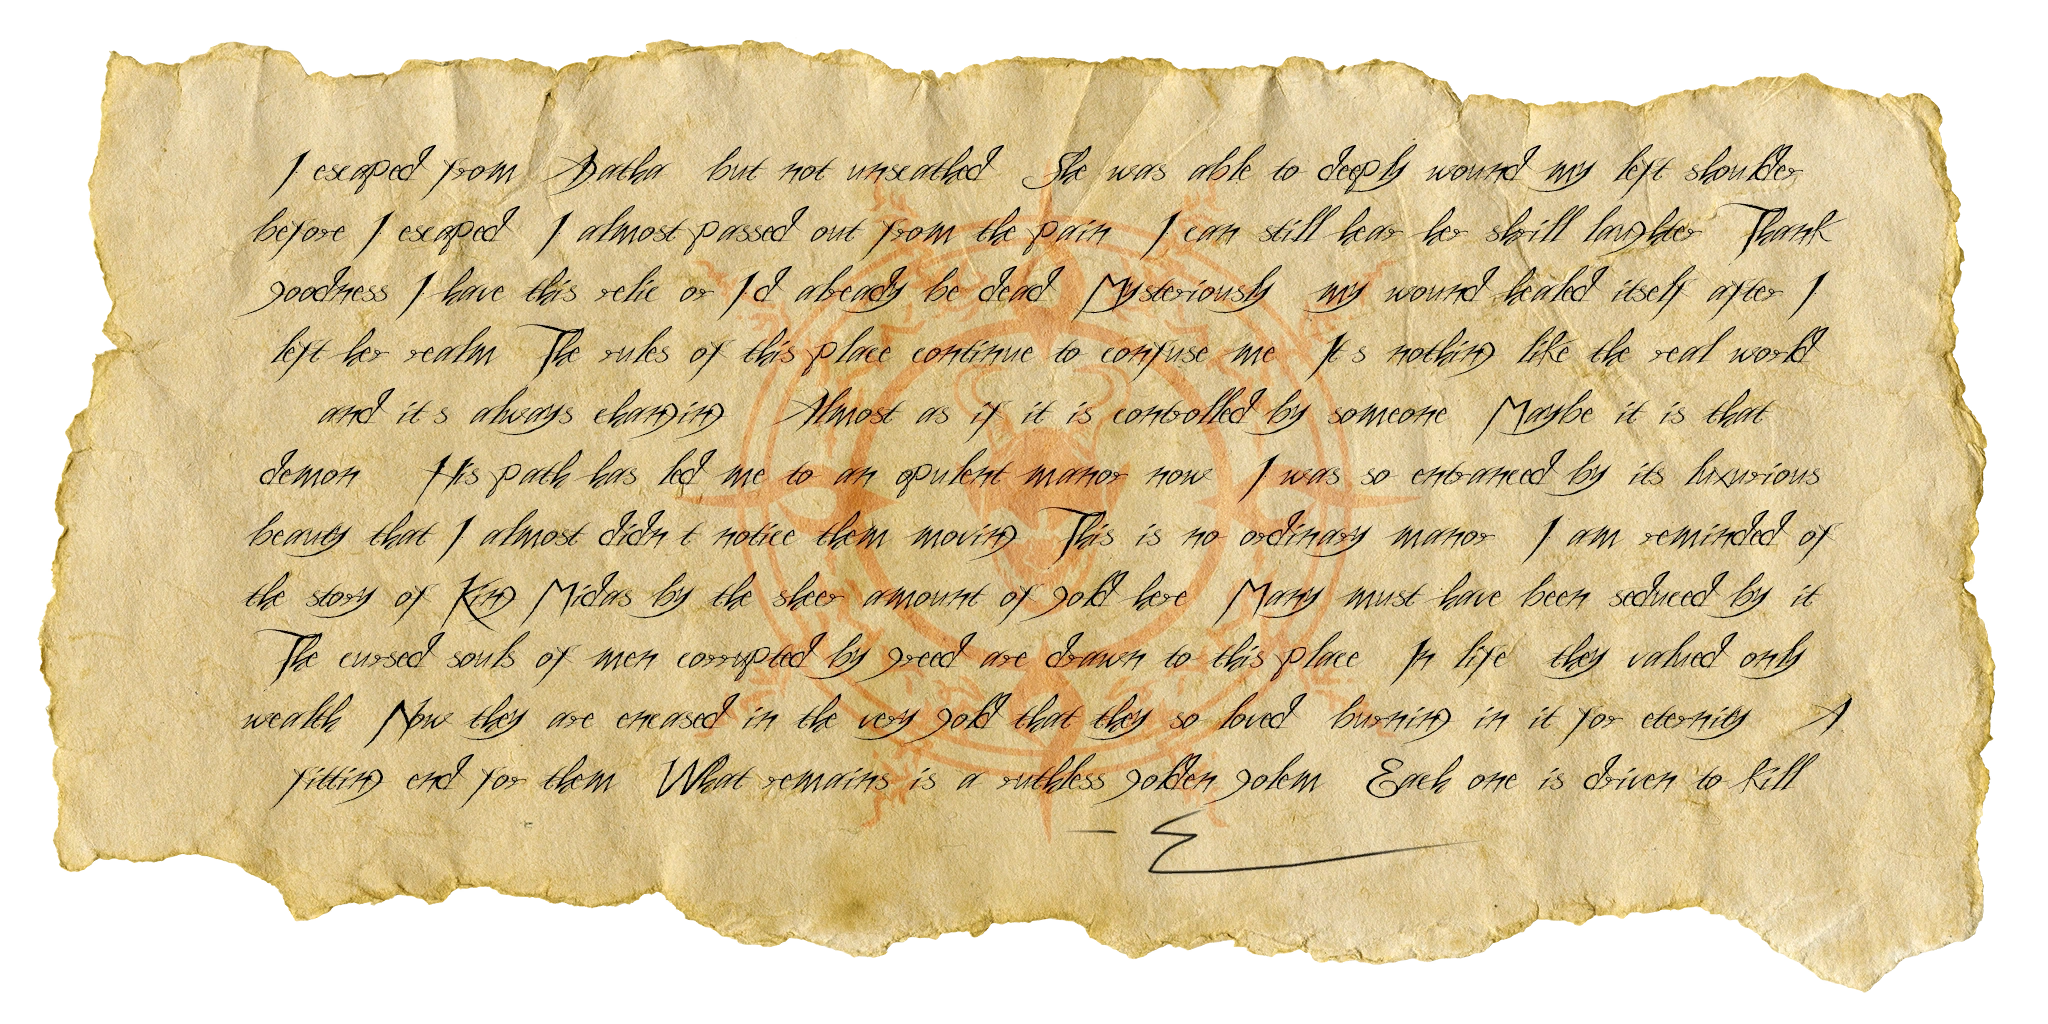 I escaped from Agatha but not unscathed She was able to deeply wound my left shoulder
before I escaped I almost passed out from the pain I can still hear her shrill laughter Thank
goodness I have this relic or I d already be dead Mysteriously my wound healed itself after I
left her realm The rules of this place continue to confuse me It s nothing like the real world
and it s always changing Almost as if it is controlled by someone Maybe it is that
demon His path has led me to an opulent manor now I was so entranced by its luxurious
beauty that I almost didn t notice them moving This is no ordinary manor I am reminded of
the story of King Midas by the sheer amount of gold here Many must have been seduced by it
The cursed souls of men corrupted by greed are drawn to this place In life they valued only
wealth Now they are encased in the very gold that they so loved burning in it for eternity A
fitting end for them What remains is a ruthless golden golem Each one is driven to kill
- E